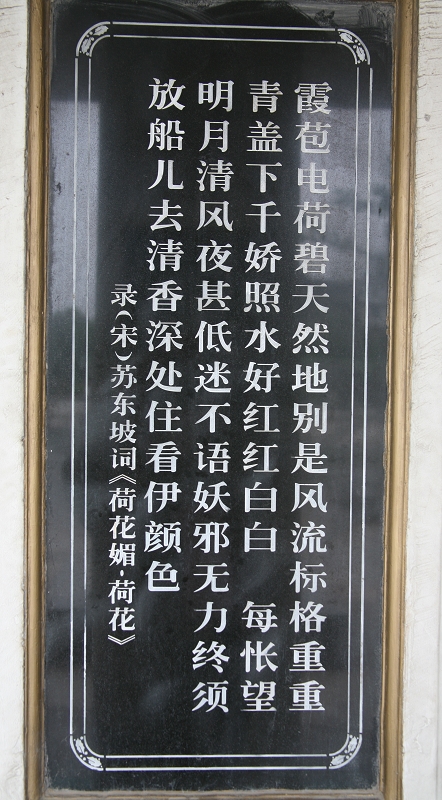 霞苞电荷碧天然地别是风流标格重重
青盖下千娇照水好红红白白 每怅望
明月清风夜甚低迷不语妖邪无力终须
放船儿去清香深处住看伊颜色
录(宋)苏东坡词《荷花媚·荷花》